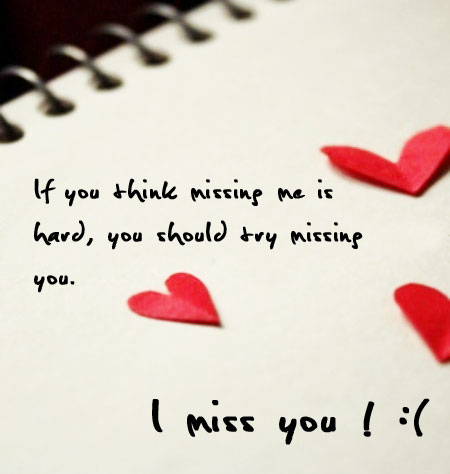 If you think missing me is
hard, you should try missing
you.
I miss you ! :(